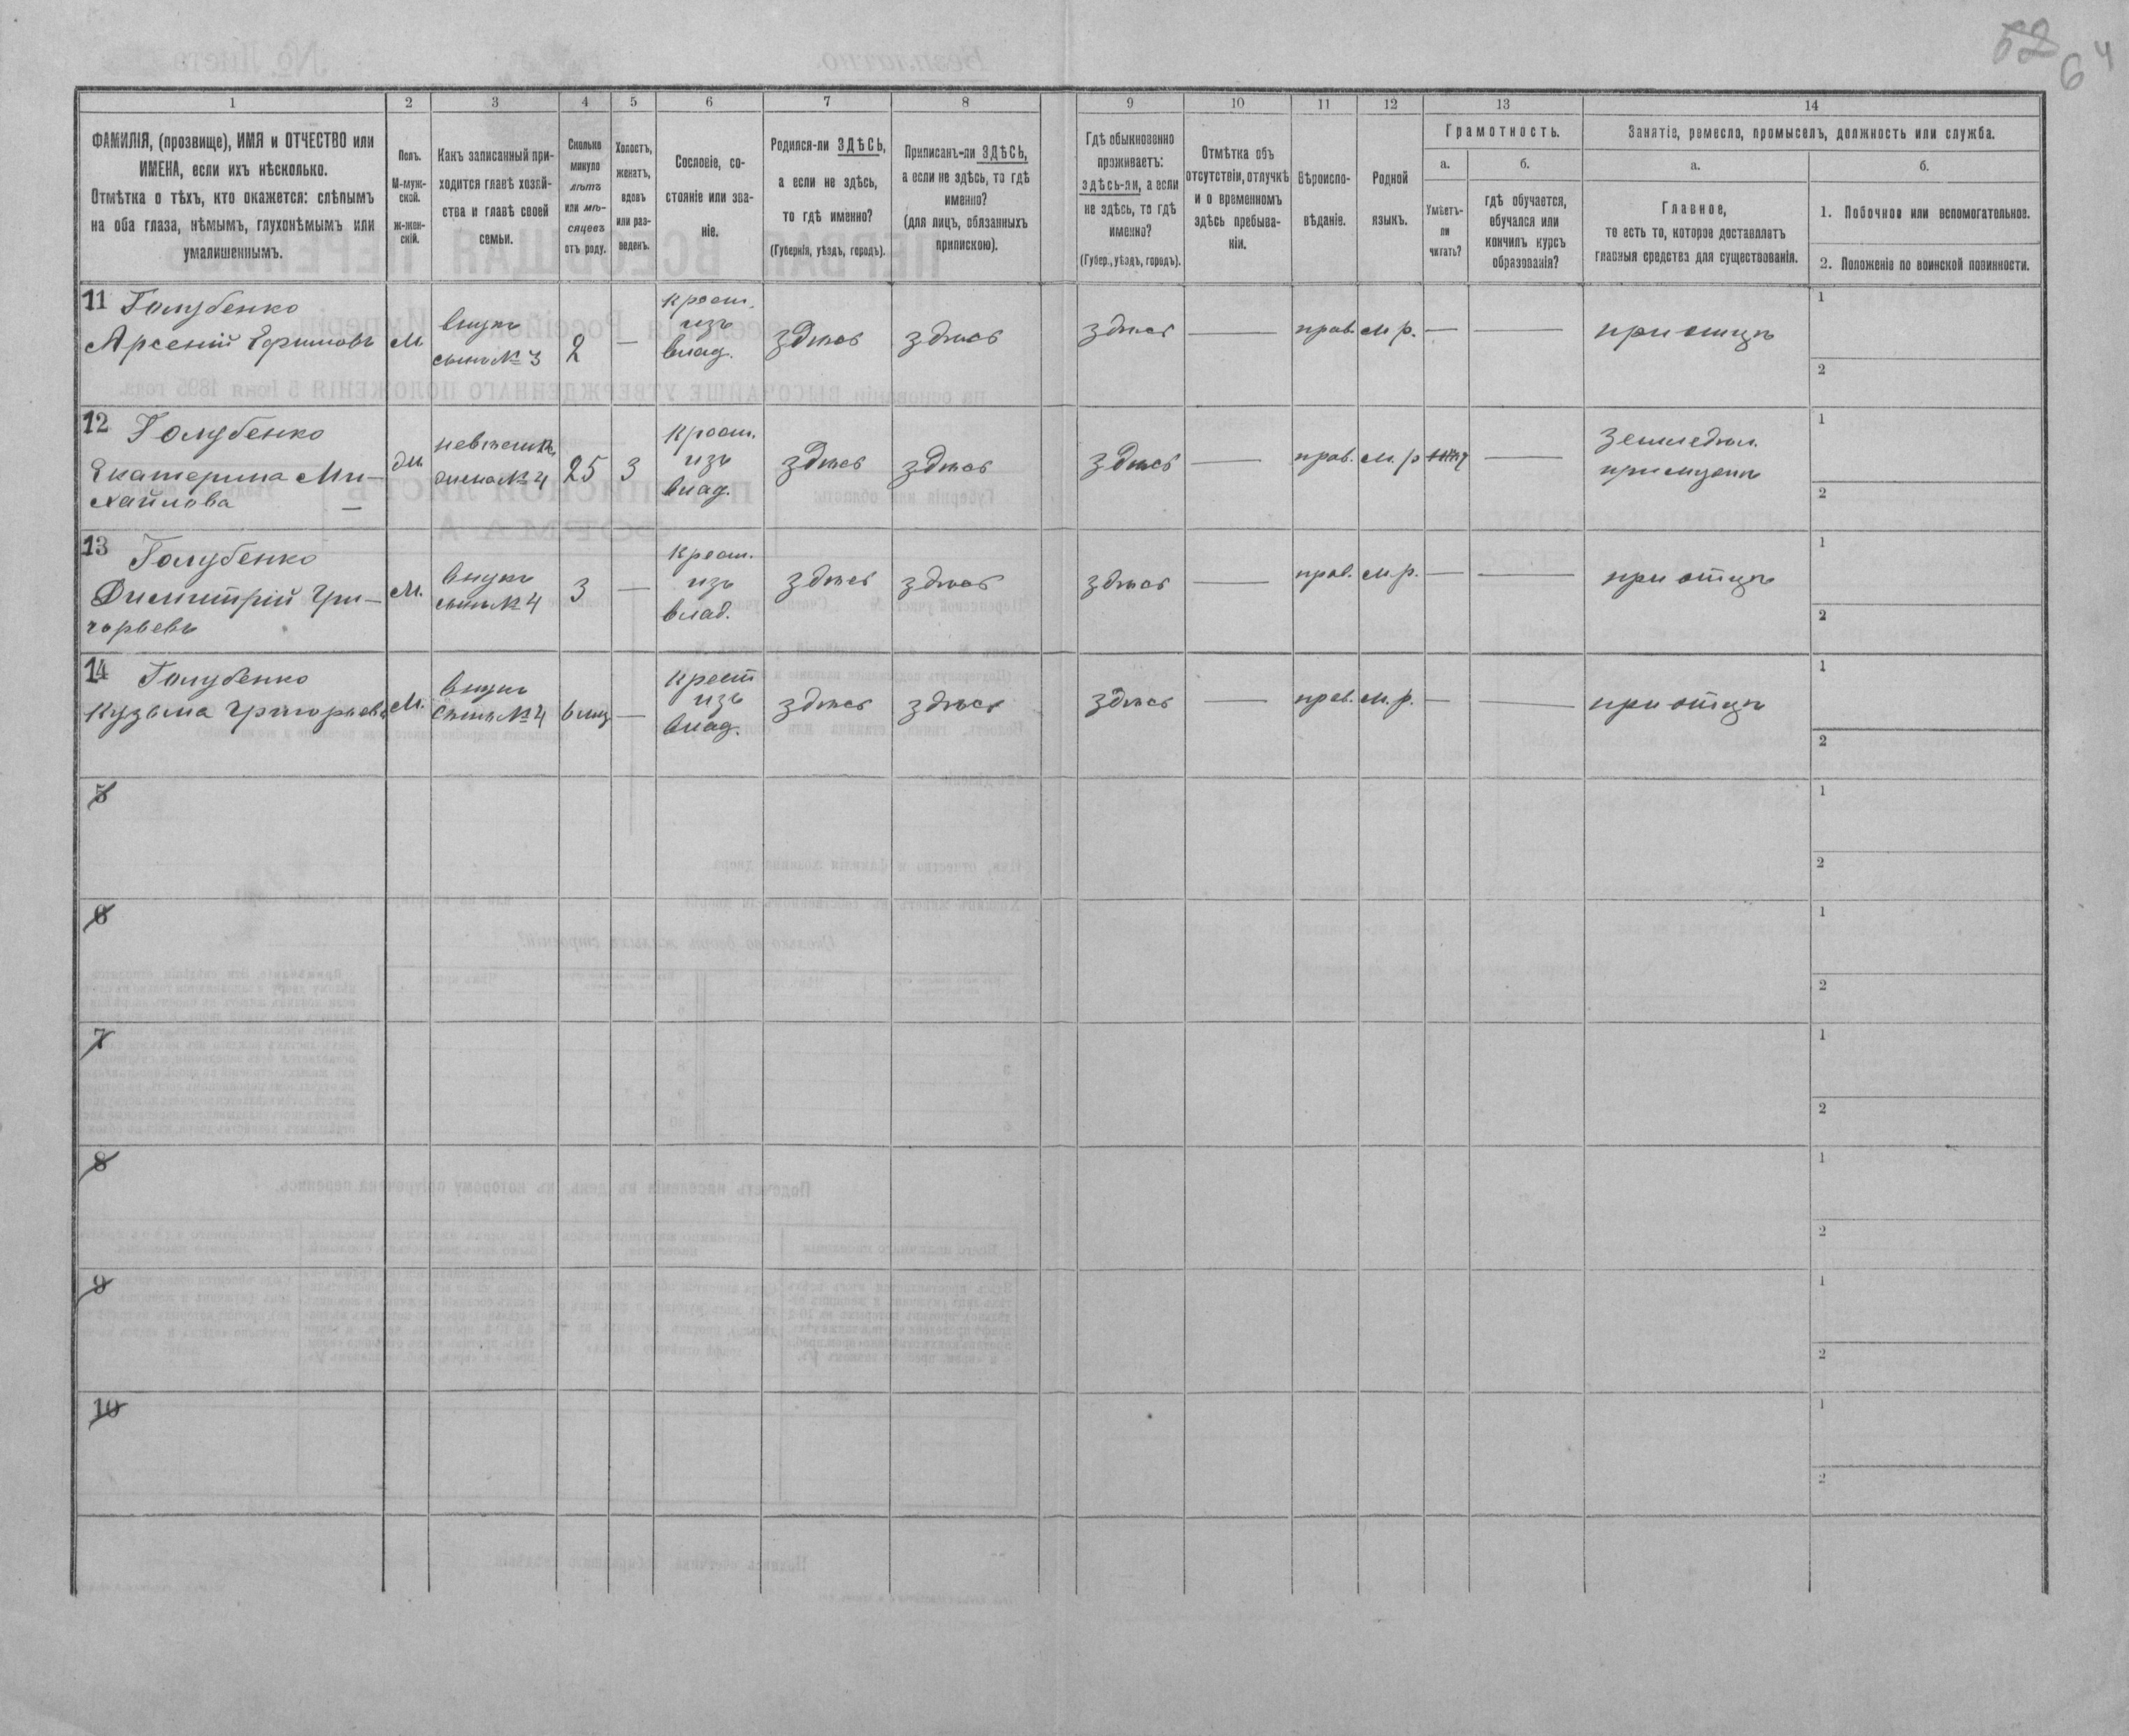 52
64
1
2
3
4
5
6
7
8
9
10
11
12
13
14
ФАМИЛІЯ, (прозвище), ИМЯ и ОТЧЕСТВО или
ИМЕНА, если ихъ нѣсколько.
Отмѣтка о тѣхъ, кто окажется: слѣпымъ
на оба глаза, нѣмымъ, глухонѣмымъ или
умалишеннымъ.
Полъ.
М-муж-
ской.
Ж-жен-
скій.
Какъ записанный при-
ходится главѣ хозяй-
ства и главѣ своей
семьи.
Сколько
минуло
лѣтъ
или мѣ-
сяцевъ
отъ роду.
Холостъ,
женатъ,
вдовъ
или раз-
веденъ.
Сословіе, со-
стояніе или зва-
ніе.
Родился-ли ЗДѢСЬ,
а если не здѣсь,
то гдѣ именно?
(Губернія, уѣздъ, городъ).
Приписанъ-ли ЗДѢСЬ,
а если не здѣсь, то гдѣ
именно?
(для лицъ, обязанныхъ
припискою).
Гдѣ обыкновенно
проживаетъ:
здѣсь-ли, а если
не здѣсь, то гдѣ
именно?
(Губер., уѣздъ, городъ).
Отмѣтка объ
отсутствіи, отлучкѣ
и о временномъ
здѣсь пребыва-
ніи.
Вѣроиспо-
вѣданіе.
Родной
языкъ.
Грамотность.
а.
Умѣетъ-
ли
читать?
б.
гдѣ обучается,
обучался или
кончилъ курсъ
образованія?
Занятіе, ремесло, промыселъ, должность или служба.
а.
Главное,
то есть то, которое доставляетъ
главныя средства для существованія.
б.
1. Побочное или вспомогательное.
2. Положеніе по воинской повинности.
11 Голубенко
Арсеній Ефимовъ
М
внукъ
сынъ № 3
2
—
крест.
изъ
влад.
здѣсь
здѣсь
здѣсь
—
прав.
м. р.
—
—
при отцѣ
1
2
12 Голубенко
Екатерина Ми-
хайлова
ж
невѣстка
жена № 4
25
З
крест.
изъ
влад.
здѣсь
здѣсь
здѣсь
—
прав.
м. р
нѣтъ
—
земледѣл.
при мужѣ
1
2
13 Голубенко
Димитрій Гри-
горьевъ
М.
внукъ
сынъ № 4
3
—
крест.
изъ
влад.
здѣсь
здѣсь
здѣсь
—
прав.
м. р.
—
—
при отцѣ
1
2
14 Голубенко
Кузьма Григорьевъ
М.
внукъ
сынъ № 4
6 мц
—
крест
изъ
влад.
здѣсь
здѣсь
здѣсь
—
прав.
м. р.
—
—
при отцѣ
1
2
5
1
2
6
1
2
7
1
2
8
1
2
9
1
2
10
1
2